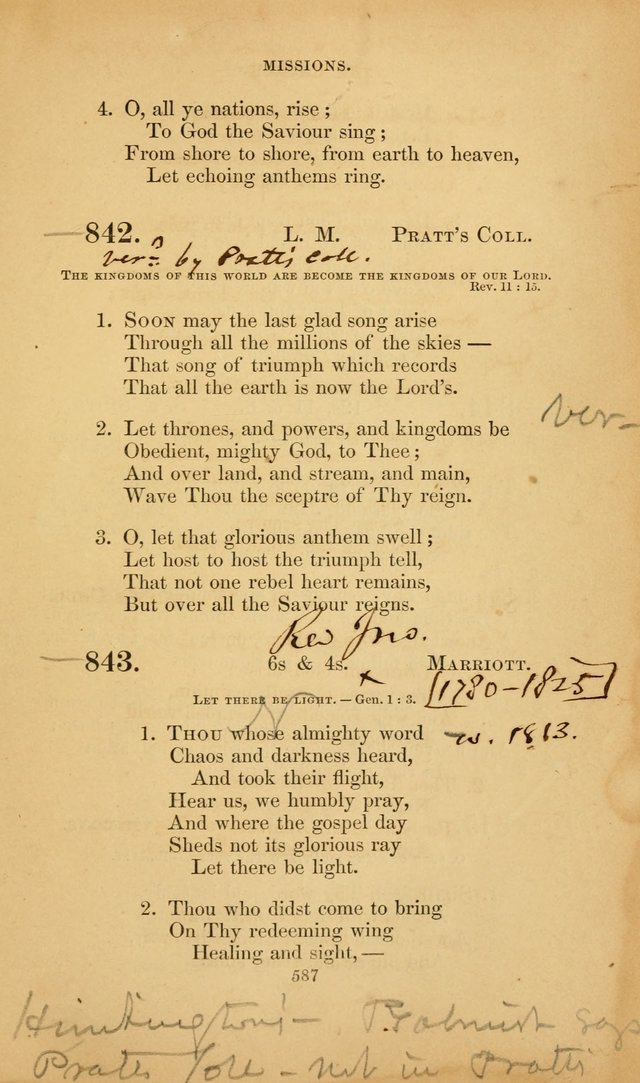 MISSIONS.
4. O, all ye nations, rise;
To God the Saviour sing;
From shore to shore, from earth to heaven,
Let echoing anthems ring.
842. L. M. PRATT'S COLL.
by Pratt's Coll.
THE KINGDOMS OF THIS WORLD ARE BECOME THE KINGDOMS OF OUR LORD.
Rev. 11 : 15.
1. SOON may the last glad song arise
Through all the millions of the skies —
That song of triumph which records
That all the earth is now the Lord's.
Ver-
2. Let thrones, and powers, and kingdoms be
Obedient, mighty God, to Thee;
And over land, and stream, and main,
Wave Thou the sceptre of Thy reign.
3. O, let that glorious anthem swell;
Let host to host the triumph tell,
That not one rebel heart remains,
But over all the Saviour reigns.
Rev Jno.
843. 6s & 4s. MARRIOTT.
[1780-1825]
LET THERE BE LIGHT. — Gen. 1 : 3.
1. THOU whose almighty word
w. 1813.
Chaos and darkness heard,
And took their flight,
Hear us, we humbly pray,
And where the gospel day
Sheds not its glorious ray
Let there be light.
2. Thou who didst come to bring
On Thy redeeming wing
Healing and sight, —
587
Huntington's - Psalmist says
Pratts Coll - not in Pratts